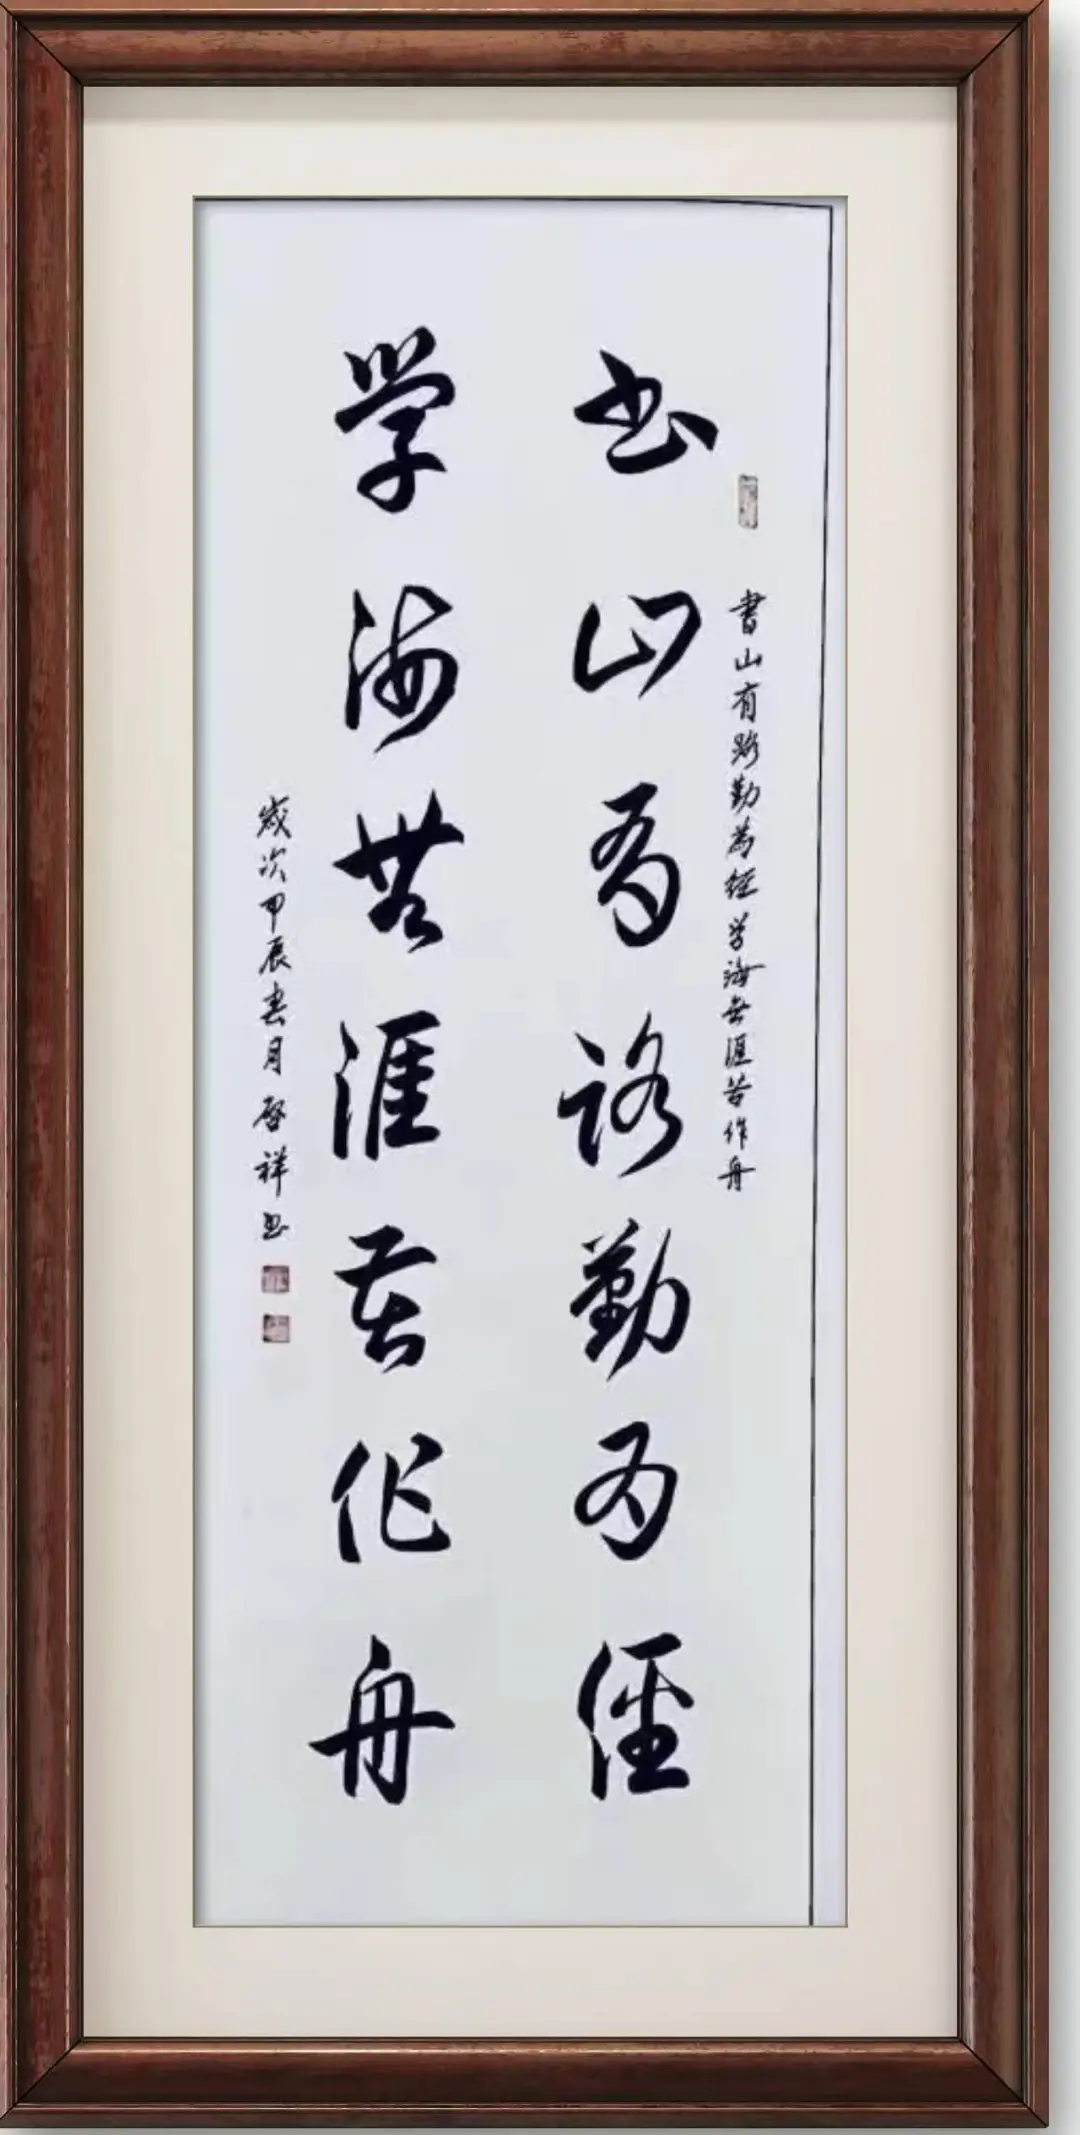 书山有路勤为径
書山有路勤為径学海無涯苦作舟
学海無涯苦作舟
歲次甲辰春月啓祥书